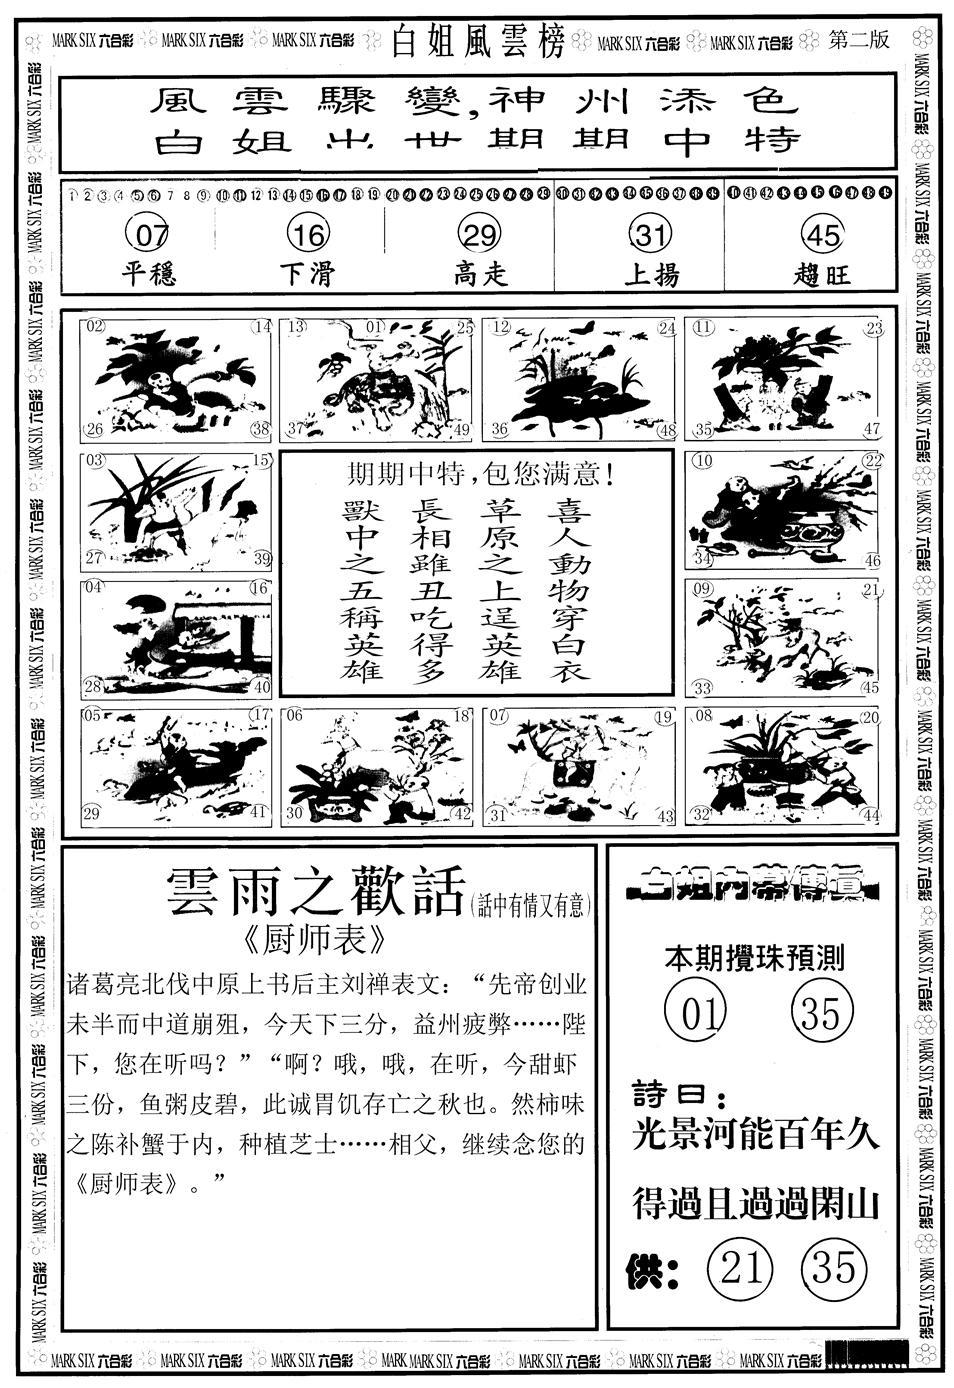 MARK SIX 六合彩 MARK SIX 六合彩 MARK SIX 六合彩 白姐風雲榜 MARK SIX 六合彩 MARK SIX 六合彩 第二版
風雲驟變,神州添色
白姐出世期期中特
1 2 3 4 5 6 7 8 9 10 11 12 13 14 15 16 17 18 19 20 21 22 23 24 25 26 27 28 29 30 31 32 33 34 35 36 37 38 39 40 41 42 43 44 45 46 47 48 49
07 16 29 31 45
平穩 下滑 高走 上揚 趨旺
02 14 13 01 25 12 24 11 23
26 38 37 49 36 48 35 47
03 15 10 22
27 39 34 46
04 16 09 21
28 40 33 45
期期中特,包您满意!
喜人動物穿白衣
草原之上逞英雄
長相雖丑吃得多
獸中之五稱英雄
05 17 06 18 07 19 08 20
29 41 30 42 31 43 32 44
雲雨之歡話(話中有情又有意)
《厨师表》
诸葛亮北伐中原上书后主刘禅表文：“先帝创业
未半而中道崩殂，今天下三分，益州疲弊……陛
下，您在听吗？”“啊？哦，哦，在听，今甜虾
三份，鱼粥皮碧，此诚胃饥存亡之秋也。然柿味
之陈补蟹于内，种植芝士……相父，继续念您的
《厨师表》。”
白姐内幕傳真
本期攪珠預測
01 35
詩曰：
光景河能百年久
得過且過過閑山
供： 21 35
MARK SIX 六合彩 MARK SIX 六合彩 MARK SIX 六合彩 MARK MARK SIX 六合彩 MARK SIX 六合彩 MARK SIX 六合彩 MARK SIX 六合彩